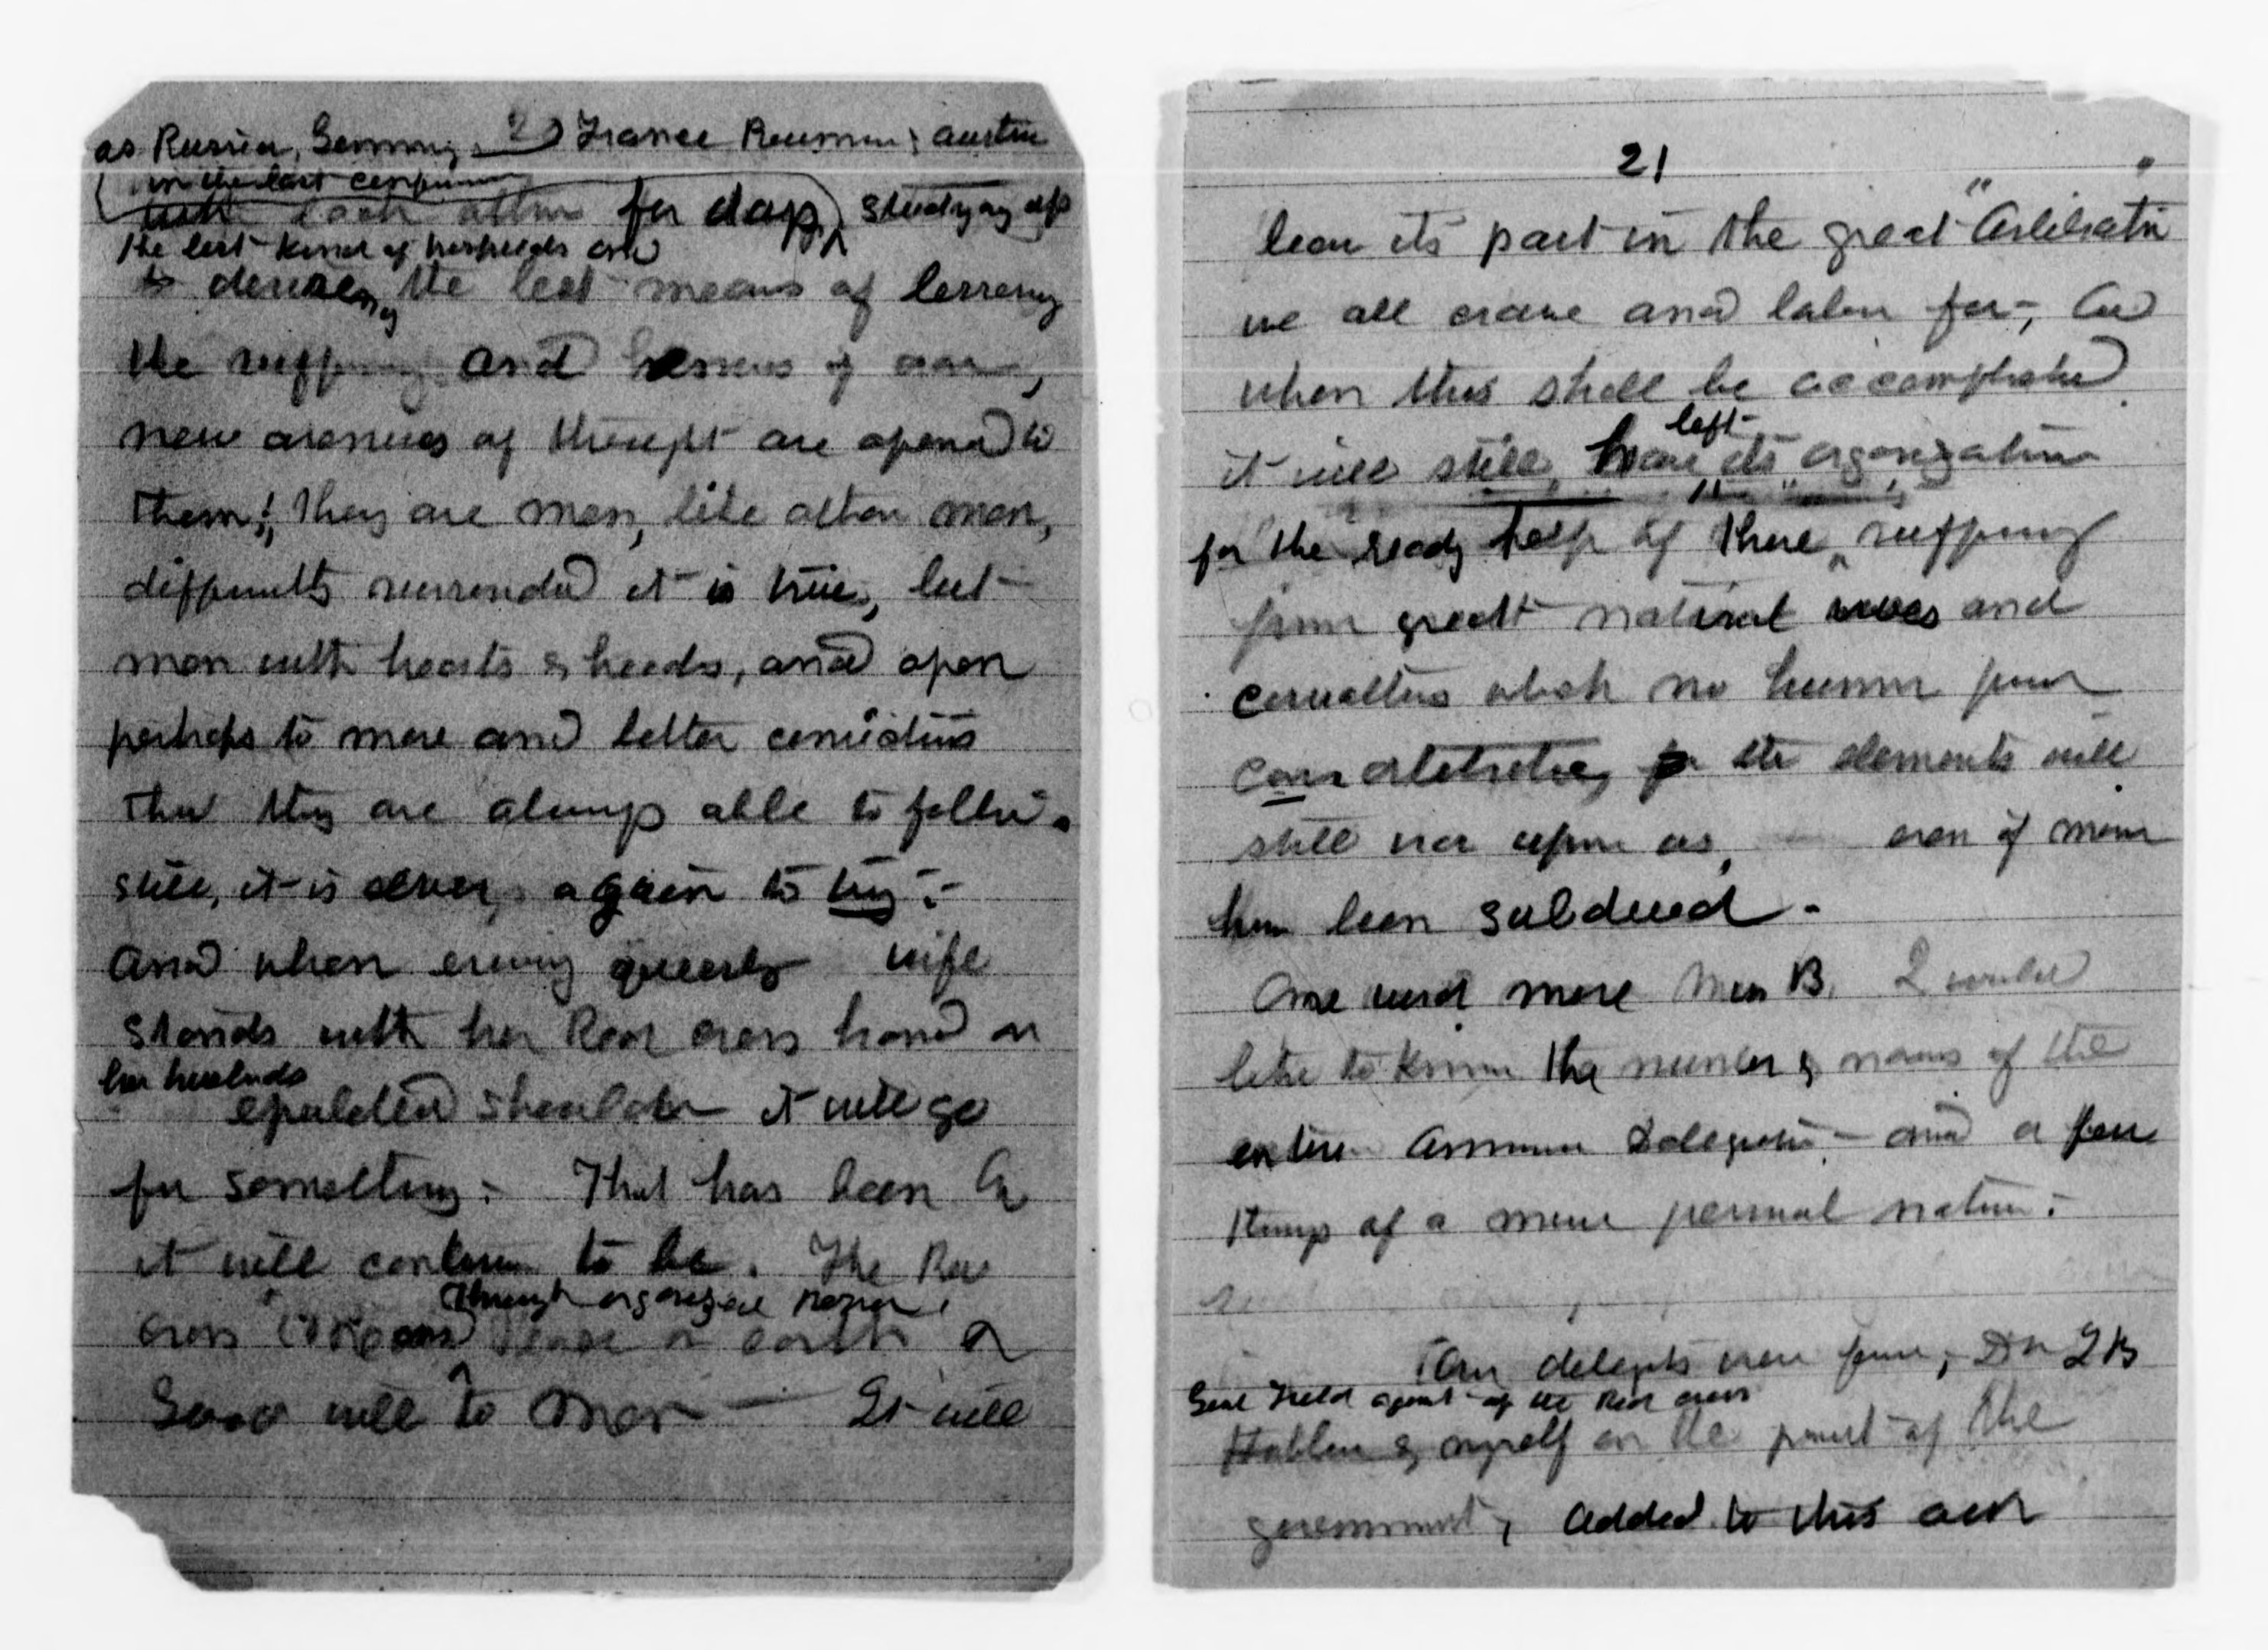 20
as Russia, Germany, France Roumania Austria
in the last
with each other for days, studying up
the best kind of hospitals and
devising the best means of lessening
the suffering and horrors of war,
new avenues of thought are opened to
them; they are men, like other men,
differently surrounded it is true, but
men with hearts & heads, and open
perhaps to more and better convictions
than they are always able to follow.
still, it is always again to try.-
And when every queenly wife
stands with her Red cross hand on
her husbands
epauletted shoulder it will go
for something. That has been &
it will continue to be. The Red
through organized
cross means Peace on earth &
Good will to Men — It will
21
bear its part in the great "Arbitration"
we all crave and labor for, and
when this shall be accomplished
left
it will still have its organization
for the ready help of those suffering
from great natural woes and
casualties which no human power
can arbitrate, for the elements will
still war upon us, even if men
have been subdued -
One word more Miss B. I would
like to know the number & names of the
entire American Delegation - and a few
things of a more personal nature.
Our delegates were four, Dr J B
Genl Field agent of the Red cross
Hubbell & myself on the part of the
government, added to this